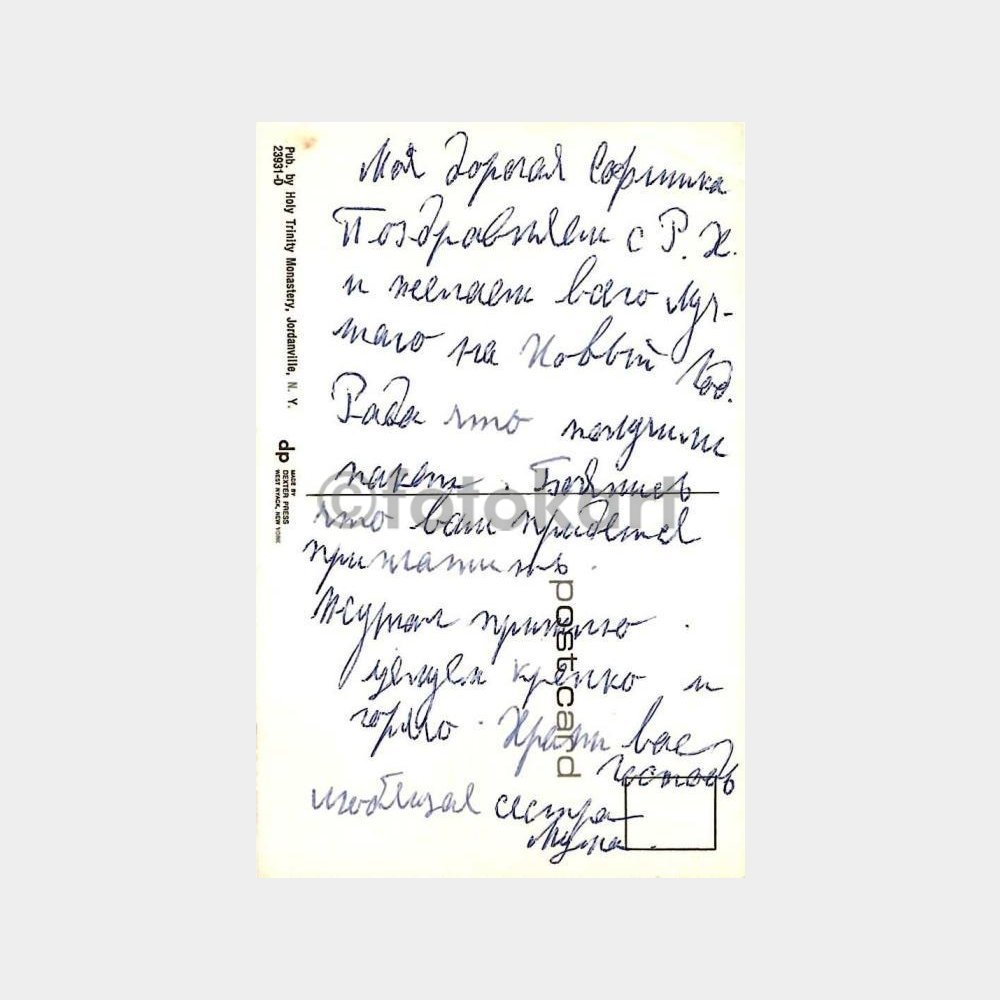 Моя дорогая Софушка
Поздравляем с Р. Х.
и желаем всего луч-
шаго на Новый Год.
Рада что получили
пакет. Боялись
что вам придется
приплатить.
Журнал пришлю.
целуем крепко и
горячо. Храни вас
Господь
любящая сестра
Pub. by Holy Trinity Monastery, Jordanville, N. Y.
23931-D
dp
MADE BY
DEXTER PRESS
WEST NYACK, NEW YORK
post card
©fotokart